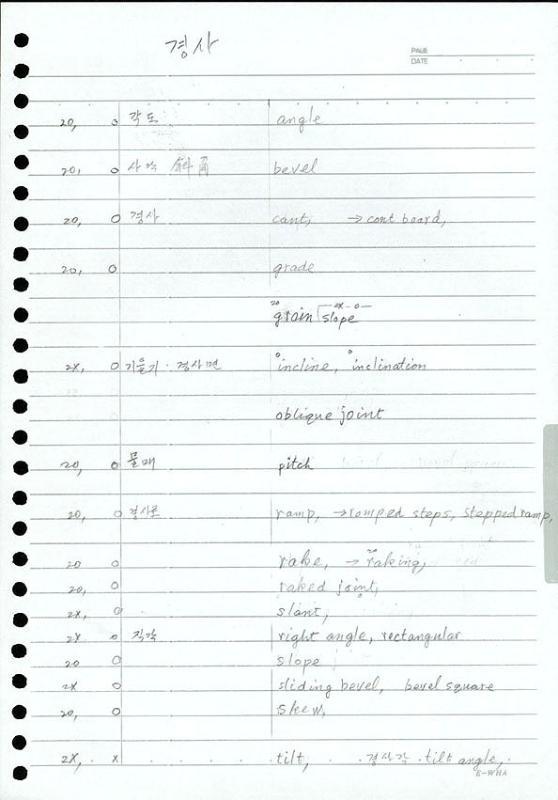 경사
PAGE
DATE
20, o 각도 angle
20, o 사각 斜角 bevel
20, o 경사 cant, → cant board,
20, o grade
20 2x - o -
grain slope
2x, o 기울기 · 경사면 °incline, °inclination
oblique joint
20, o 물매 pitch
20, o 경사로 ramp, → ramped steps, stepped ramp,
20 o rake, → raking,
20, o raked joint,
2x, o slant,
2x o 직각 right angle, rectangular
20 o slope
2x o sliding bevel, bevel square
20, o skew,
2x, x tilt, 경사각 tilt angle,
E-WHA